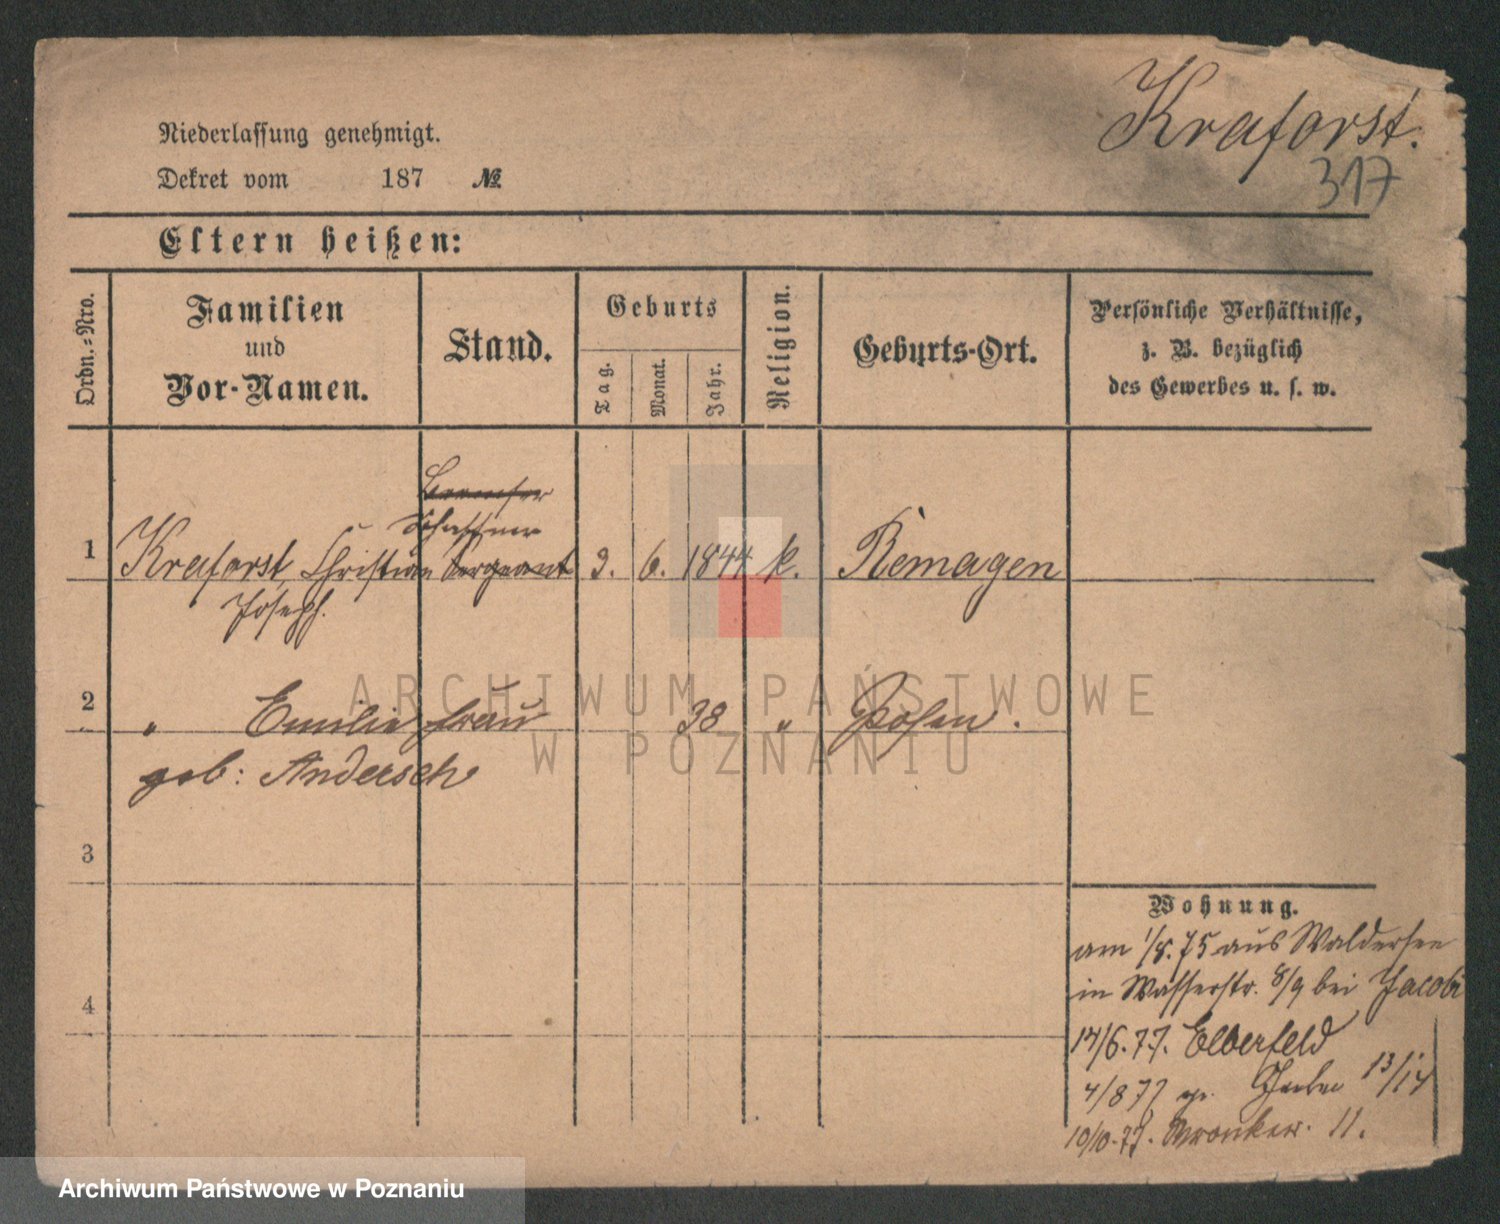 Kraforst.
317
Niederlassung genehmigt.
Dekret vom 187 №
Eltern heißen:
Ordn.=Nro.
Familien
und
Vor-Namen.
Stand.
Geburts
Tag.
Monat.
Jahr.
Religion.
Geburts-Ort.
Persönliche Verhältnisse,
z. B. bezüglich
des Gewerbes u. s. w.
Bremser
Schaffner
1 Kraforst, Christian Sergeant 3. 6. 1844 k. Remagen
Joseph.
2 " Emilie Frau 38 " Posen.
geb: Andersch
3
4
Wohnung.
am 1/8. 75 aus Waldersee
in Wasserstr. 8/9 bei Jacobi
17/6. 77. Elberfeld
4/8 77 gr. 13/14
10/10. 77. Wronker. 11.
ARCHIWUM PAŃSTWOWE
W POZNANIU
Archiwum Państwowe w Poznaniu